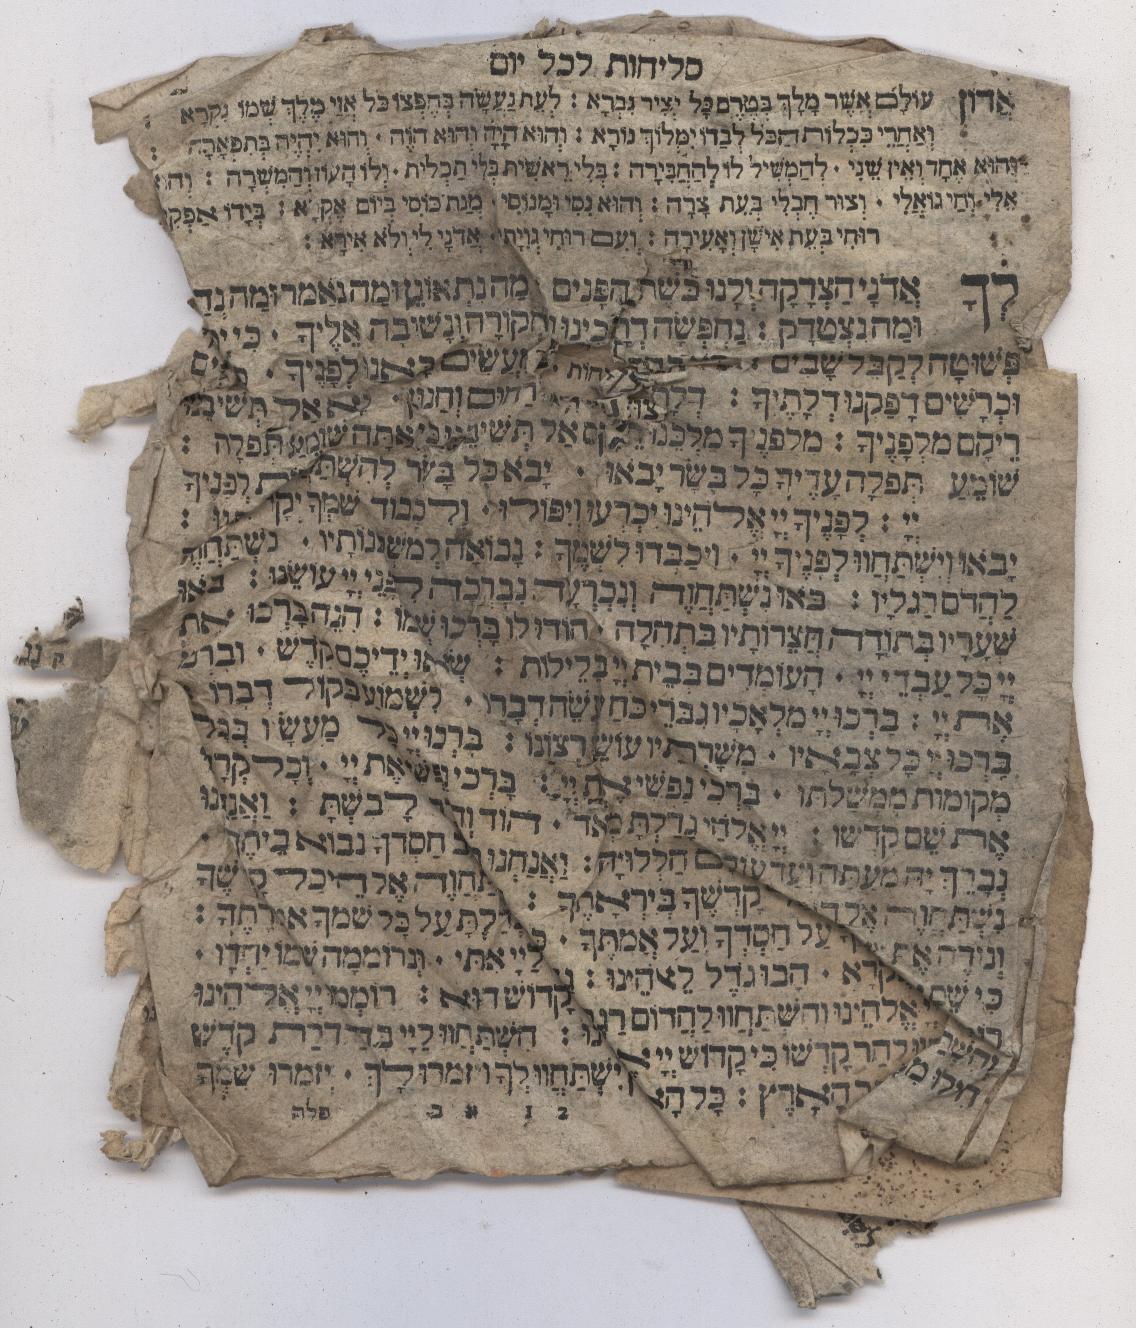 סליחות לכל יום
אֲדוֹן עוֹלָם אֲשֶׁר מָלַךְ בְּטֶרֶם כָּל יְצִיר נִבְרָא : לְעֵת נַעֲשָׂה בְחֶפְצוֹ כֹּל אֲזַי מֶלֶךְ שְׁמוֹ נִקְרָא
וְאַחֲרֵי כִּכְלוֹת הַכֹּל לְבַדּוֹ יִמְלוֹךְ נוֹרָא : וְהוּא הָיָה וְהוּא הוֹוֶה · וְהוּא יִהְיֶה בְּתִפְאָרָה :
וְהוּא אֶחָד וְאֵין שֵׁנִי · לְהַמְשִׁיל לוֹ לְהַחְבִּירָה : בְּלִי רֵאשִׁית בְּלִי תַכְלִית · וְלוֹ הָעוֹז וְהַמִּשְׂרָה : וְהוּא
אֵלִי וְחַי גּוֹאֲלִי · וְצוּר חֶבְלִי בְּעֵת צָרָה : וְהוּא נִסִּי וּמָנוּסִי · מְנַת כּוֹסִי בְּיוֹם אֶקְרָא : בְּיָדוֹ אַפְקִ
רוּחִי בְּעֵת אִישַׁן וְאָעִירָה : וְעִם רוּחִי גְּוִיָּתִי · אֲדֹנָי לִי וְלֹא אִירָא :
לְךָ אֲדֹנָי הַצְּדָקָה וְלָנוּ בֹּשֶׁת הַפָּנִים מַה נִּתְאוֹנֵן וּמַה נֹּאמַר וּמַה נְּדַ
וּמַה נִּצְטַדָּק : נַחְפְּשָׂה דְרָכֵינוּ וְנַחְקוֹרָה וְנָשׁוּבָה אֵלֶיךָ · כִּי
פְּשׁוּטָה לְקַבֵּל שָׁבִים · בְמַעֲשִׂים בָּאנוּ לְפָנֶיךָ ·
וּכְרָשִׁים דָּפַקְנוּ דְלָתֶיךָ : רַחוּם וְחַנּוּן · אַל תְּשִׁיבֵנוּ
רֵיקָם מִלְּפָנֶיךָ : מִלְּפָנֶיךָ מַלְכֵּנוּ רֵיקָם אַל תְּשִׁיבֵנוּ כִּי אַתָּה שׁוֹמֵעַ תְּפִלָּה :
שׁוֹמֵעַ תְּפִלָּה עָדֶיךָ כָּל בָּשָׂר יָבֹאוּ · יָבֹא כָל בָּשָׂר לְהִשְׁתַּ לְפָנֶיךָ
יְיָ : לְפָנֶיךָ יְיָ אֱלֹהֵינוּ יִכְרְעוּ וְיִפּוֹלוּ · וְלִכְבוֹד שִׁמְךָ יְקָר :
יָבֹאוּ וְיִשְׁתַּחֲווּ לְפָנֶיךָ יְיָ · וִיכַבְּדוּ לִשְׁמֶךָ : נָבוֹאָה לְמִשְׁכְּנוֹתָיו · נִשְׁתַּחֲוֶה
לַהֲדֹם רַגְלָיו : בֹּאוּ נִשְׁתַּחֲוֶה וְנִכְרָעָה נִבְרְכָה לִפְנֵי יְיָ עוֹשֵׂנוּ : בֹּאוּ
שְׁעָרָיו בְּתוֹדָה חֲצֵרוֹתָיו בִּתְהִלָּה הוֹדוּ לוֹ בָּרְכוּ שְׁמוֹ : הִנֵּה בָּרְכוּ אֶת
יְיָ כָּל עַבְדֵי יְיָ · הָעוֹמְדִים בְּבֵית יְיָ בַּלֵּילוֹת : שְׂאוּ יְדֵיכֶם קֹדֶשׁ · וּבָרְכוּ
אֶת יְיָ : בָּרְכוּ יְיָ מַלְאָכָיו גִּבֹּרֵי כֹחַ עוֹשֵׂה דְבָרוֹ · לִשְׁמוֹעַ בְּקוֹל דְּבָרוֹ
בָּרְכוּ יְיָ כָּל צְבָאָיו · מְשָׁרְתָיו עוֹשֵׂי רְצוֹנוֹ : בָּרְכוּ יְיָ כָּל מַעֲשָׂיו בְּכָל
מְקוֹמוֹת מֶמְשַׁלְתּוֹ · בָּרְכִי נַפְשִׁי אֶת יְיָ : בָּרְכִי נַפְשִׁי אֶת יְיָ · וְכָל קְרָבַי
אֶת שֵׁם קָדְשׁוֹ : יְיָ אֱלֹהַי גָּדַלְתָּ מְאֹד · הוֹד וְהָדָר לָבָשְׁתָּ : וַאֲנַחְנוּ
נְבָרֵךְ יָהּ מֵעַתָּה וְעַד עוֹלָם הַלְלוּיָהּ : וַאֲנַחְנוּ חַסְדְּךָ נָבוֹא בֵיתֶךָ
נִשְׁתַּחֲוֶה אֶל הֵיכַל קָדְשְׁךָ בְּיִרְאָתֶךָ : נִשְׁתַּחֲוֶה אֶל הֵיכַל קָדְשְׁךָ
וְנוֹדֶה אֶת שְׁמֶךָ עַל חַסְדְּךָ וְעַל אֲמִתֶּךָ · הִגְדַּלְתָּ עַל כָּל שִׁמְךָ אִמְרָתֶךָ :
כִּי שֵׁם אֶקְרָא · הָבוּ גֹדֶל לֵאלֹהֵינוּ : לַיְיָ אִתִּי · וּנְרוֹמְמָה שְׁמוֹ יַחְדָּו ·
אֱלֹהֵינוּ וְהִשְׁתַּחֲווּ לַהֲדוֹם רַגְלָיו קָדוֹשׁ הוּא : רוֹמְמוּ יְיָ אֱלֹהֵינוּ
וְהִשְׁתַּחֲווּ לְהַר קָדְשׁוֹ כִּי קָדוֹשׁ יְיָ : הִשְׁתַּחֲווּ לַיְיָ בְּהַדְרַת קֹדֶשׁ
חִילוּ הָאָרֶץ : כָּל הָאָ יִשְׁתַּחֲווּ לְךָ וִיזַמְּרוּ לָךְ · יְזַמְּרוּ שִׁמְךָ
סלה